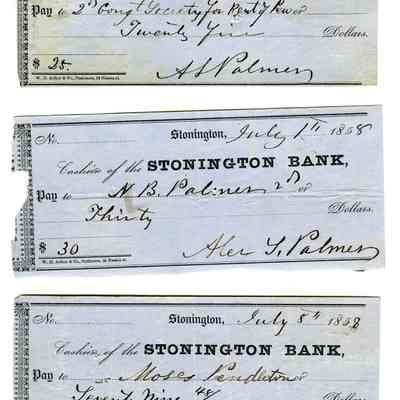 Pay to 2d Congl Society for Rent of Pew or
Twenty Five Dollars.
$ 25.
A S Palmer
W. D. Arthur & Co., Stationers, 39 Nassau st.
No. Stonington, July 1st 1858
Cashier of the STONINGTON BANK,
Pay to N. B. Palmer 2d or
Thirty Dollars.
$ 30 Alex S. Palmer
W. D. Arthur & Co., Stationers, 39 Nassau st.
No. Stonington, July 8th 1858
Cashier of the STONINGTON BANK,
Pay to Moses Pendleton or
Seventy Nine 48/ Dollars.